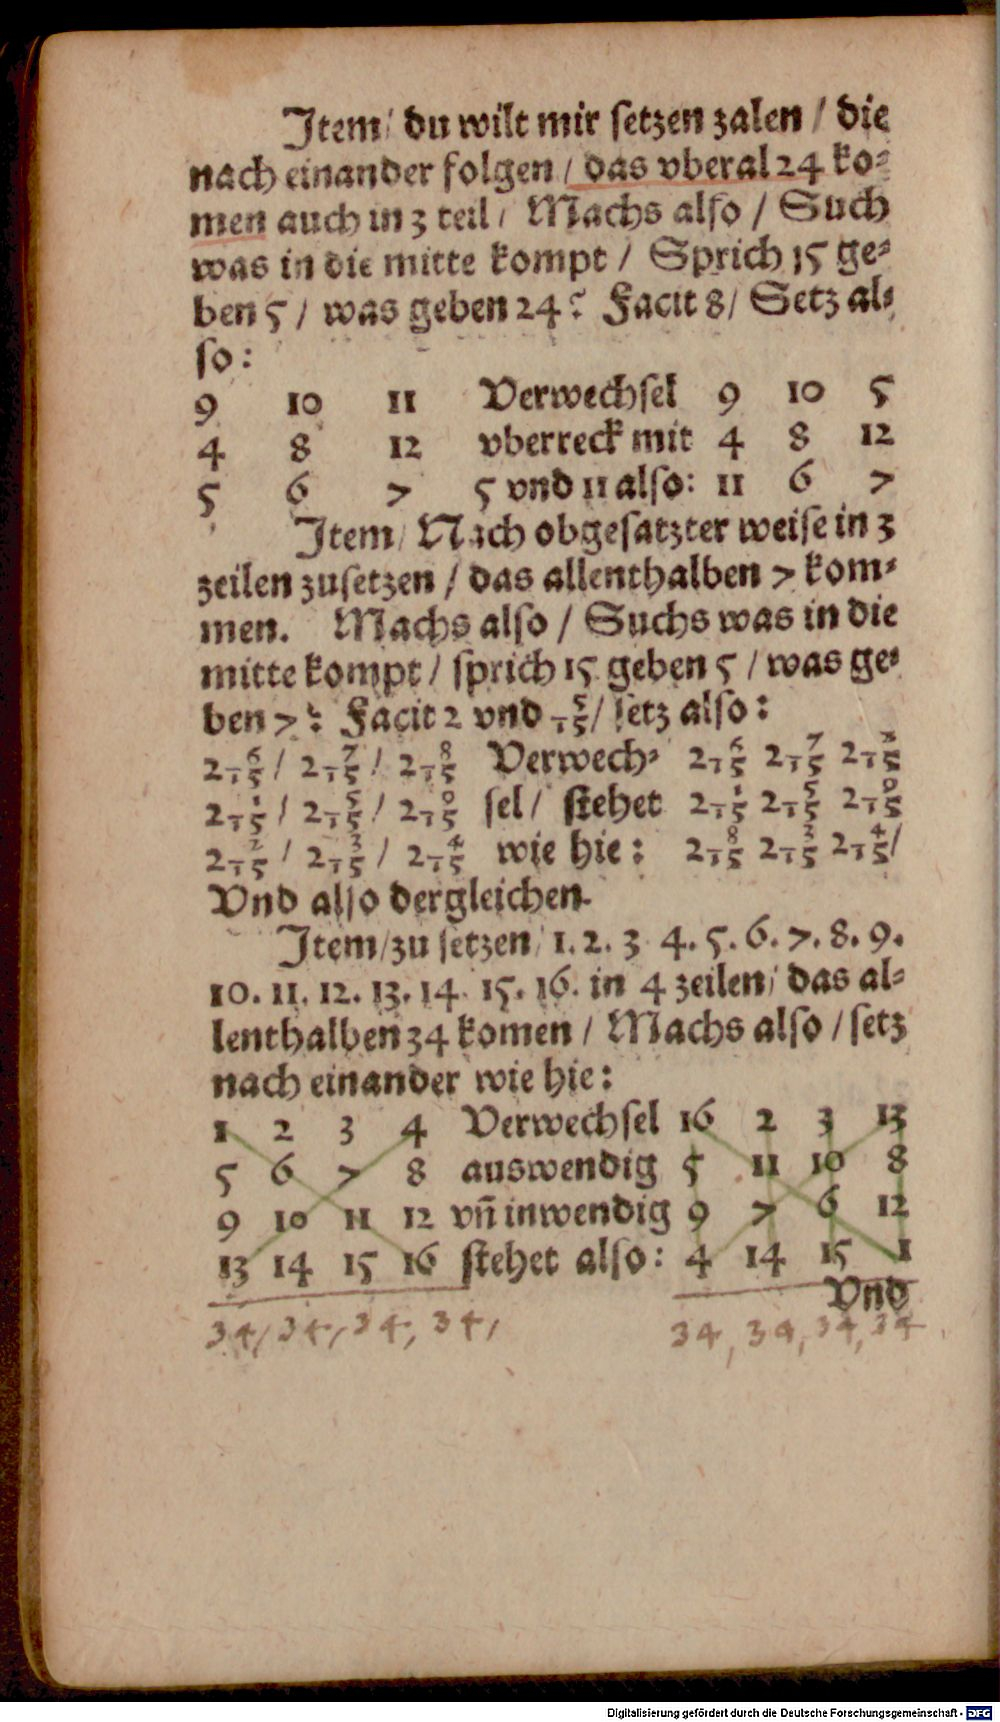 Item/ du wilt mir setzen zalen / die
nach einander folgen / das vberal 24 ko⸗
men auch in 3 teil / Machs also / Such
was in die mitte kompt / Sprich 15 ge⸗
ben 5 / was geben 24? Facit 8/ Setz al⸗
so:
9 10 11 Verwechsel 9 10 5
4 8 12 vberreck mit 4 8 12
5 6 7 5 vnd 11 also: 11 6 7
Item/ Nach obgesatzter weise in 3
zeilen zusetzen / das allenthalben 7 kom⸗
men. Machs also / Suchs was in die
mitte kompt / sprich 15 geben 5 / was ge⸗
ben 7? Facit 2 vnd 5/15/ setz also:
2 6/15 / 2 7/15 / 2 8/15 Verwech⸗ 2 6/15 2 7/15 2 2/15
2 1/15 / 2 5/15 / 2 0/15 sel/ stehet 2 1/15 2 5/15 2 0/15
2 2/15 / 2 3/15 / 2 4/15 wie hie: 2 8/15 2 3/15 2 4/15/
Vnd also dergleichen.
Item/zu setzen/ 1. 2. 3 4. 5. 6. 7. 8. 9.
10. 11. 12. 13. 14. 15. 16. in 4 zeilen/ das al⸗
lenthalben 34 komen / Machs also / setz
nach einander wie hie:
1 2 3 4 Verwechsel 16 2 3 13
5 6 7 8 auswendig 5 11 10 8
9 10 11 12 vñ inwendig 9 7 6 12
13 14 15 16 stehet also: 4 14 15 1
Vnd
34, 34, 34, 34, 34, 34, 34, 34
Digitalisierung gefördert durch die Deutsche Forschungsgemeinschaft - DFG